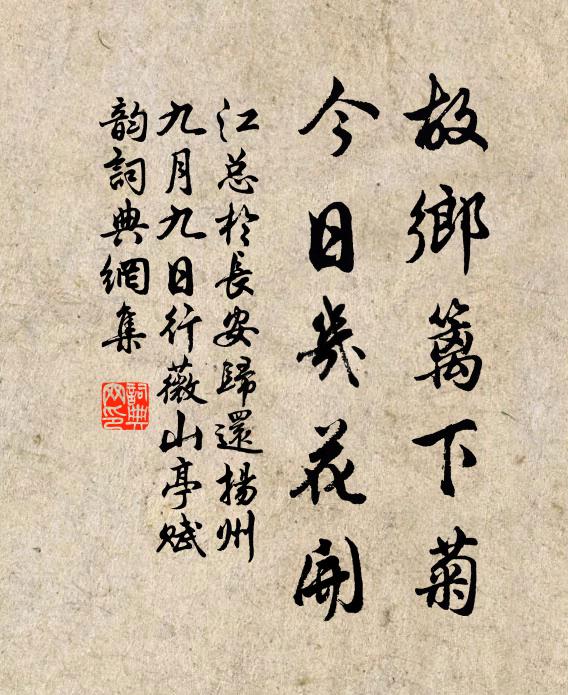 故鄉籬下菊
今日幾花開
江总於長安歸還揚州
九月九日行薇山亭賦
韵詞典網集
詞典
网印